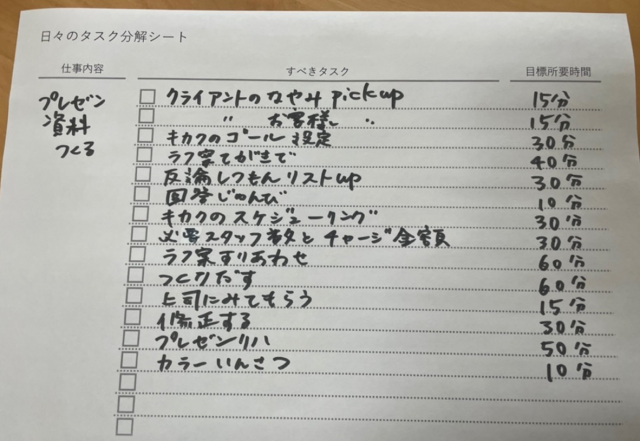 日々のタスク分解シート
仕事内容 すべきタスク 目標所要時間
プレゼン資料つくる
クライアントのなやみ pick up 15分
〃 お客様 〃 15分
キカクのゴール設定 30分
ラフ案てがきで 40分
反論しつもんリストup 30分
回答じゅんび 10分
キカクのスケジューリング 30分
必要スタッフ数とチャージ金額 30分
ラフ案すりあわせ 60分
つくりだす 60分
上司にみてもらう 15分
修正する 30分
プレゼンリハ 50分
カラーいんさつ 10分